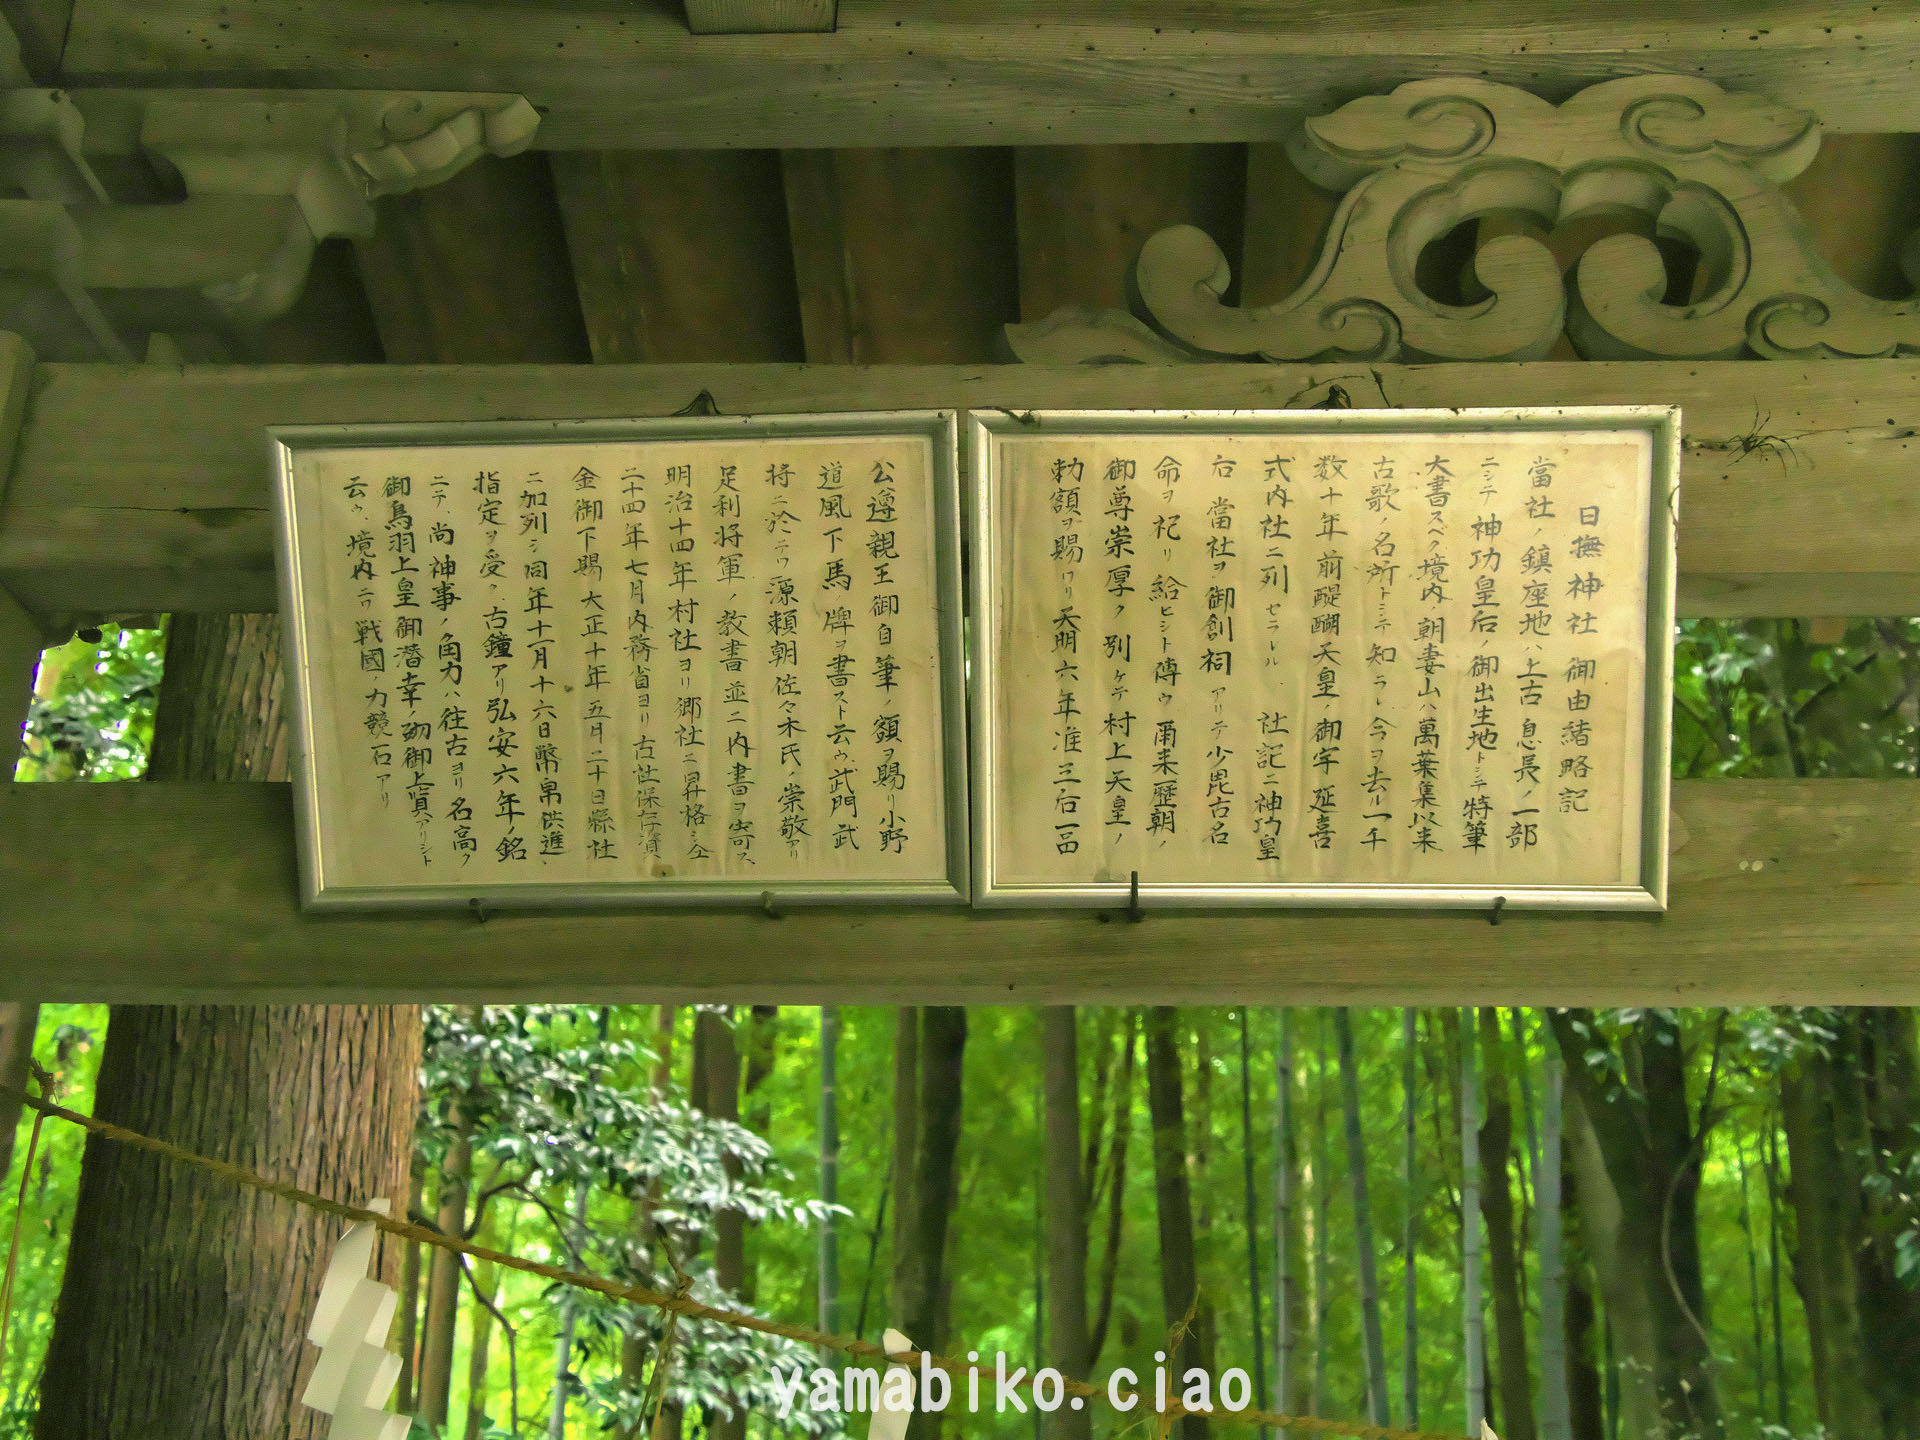 日撫神社御由緒略記
當社ノ鎮座地ハ上古息長ノ一部
ニシテ神功皇后御出生地トシテ特筆
大書スベク境内ノ朝妻山ハ萬葉集以来
古歌ノ名所トシテ知ラレ今ヲ去ル一千
数十年前醍醐天皇ノ御宇延喜
式内社ニ列セラル 社記ニ神功皇
后當社ヲ御創祠アリテ少毘古名
命ヲ祀リ給ヒシト傳ウ爾来歴朝ノ
御尊崇厚ク別ケテ村上天皇ノ
勅額ヲ賜ワリ天明六年准三后一品
公遵親王御自筆ノ額ヲ賜リ小野
道風下馬牌ヲ書スト云ウ武門武
将ニ於テワ源頼朝佐々木氏ノ崇敬アリ
足利将軍ノ教書並ニ内書ヲ寄ス
明治十四年村社ヨリ郷社ニ昇格シ全
二十四年七月内務省ヨリ古社保存資
金御下賜大正十年五月二十日縣社
ニ加列シ同年十一月十六日幣帛供進
指定ヲ受ク古鐘アリ弘安六年ノ銘
ニテ尚神事ノ角力ハ往古ヨリ名高ク
御鳥羽上皇御潜幸ノ砌御上覧アリシト
云ウ境内ニワ戦國ノ力競石アリ
yamabiko.ciao